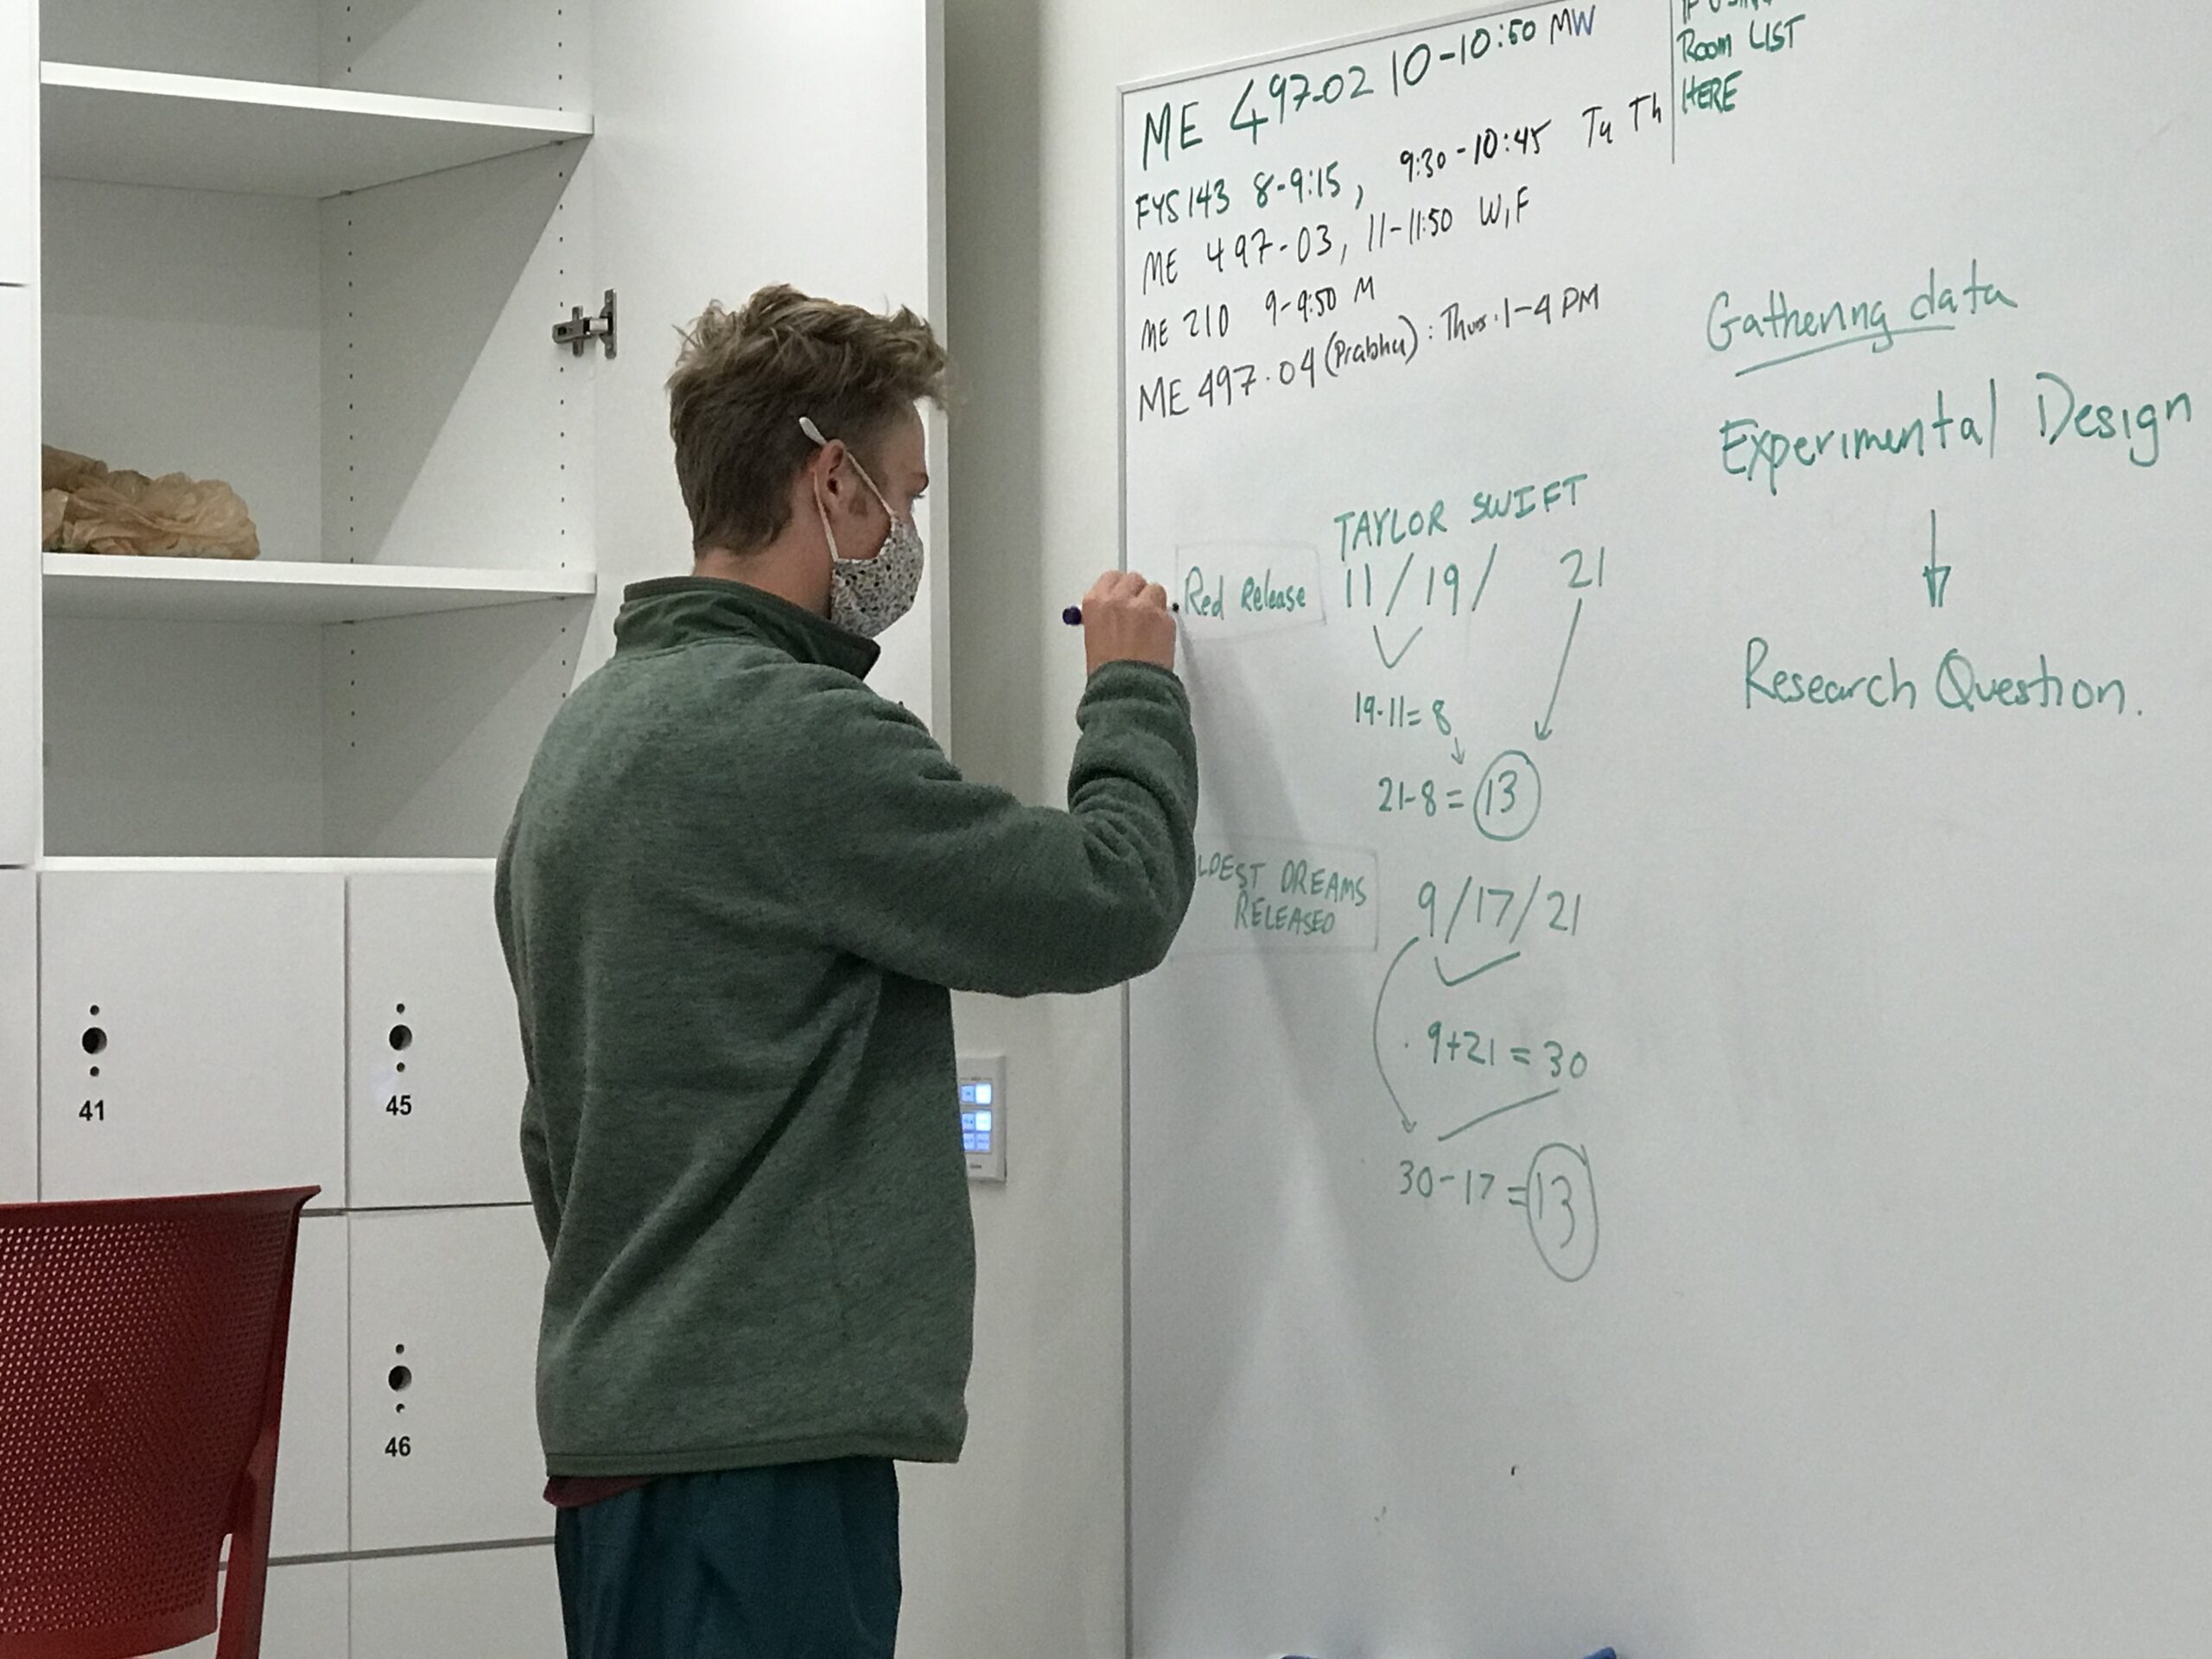 ME 497-02 10-10:50 MW
FYS143 8-9:15, 9:30-10:45 Tu Th
ME 497-03, 11-11:50 W,F
ME 210 9-9:50 M
ME 497.04 (Prabhu): Thurs. 1-4 PM
IF USING
Room LIST
HERE
Gathering data
Experimental Design
Research Question.
TAYLOR SWIFT
Red Release 11/19/ 21
19-11=8
21-8=13
LDEST DREAMS
RELEASED
9/17/21
9+21=30
30-17=13
41
45
46